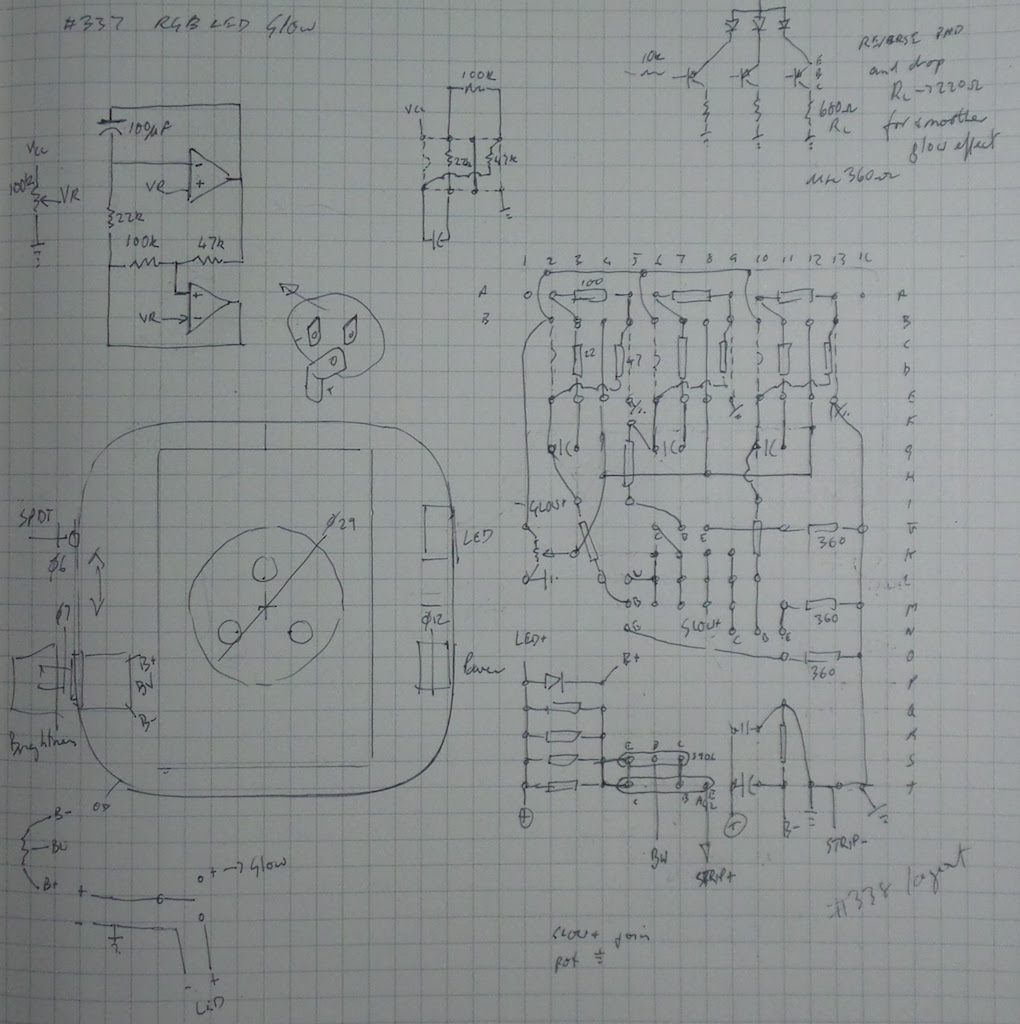 #337 RGB LED Glow
REVERSE PAD
and drop
RL → 220Ω
for smoother
glow effect
10k
E
B
C
680Ω
RL
use 360Ω
100k
Vcc
22k
47k
100µF
Vcc
100k
VR
VR
22k
100k
47k
VR
1 2 3 4 5 6 7 8 9 10 11 12 13 14
A
100
A
B
B
C
22
47
C
D
D
E
E
F
F
G
G
H
H
I
GLOW+
J
360
K
L
M
360
N
O
360
GLOW+
C
B
E
LED+
B+
P
Q
R
S
T
E B C
C
B
BW
STRIP+
B-
STRIP-
SPDT
φ6
φ7
φ29
LED
φ12
Power
B+
BW
B-
Brightness
OD
B-
BW
B+
+ → Glow
+
-
-
+
LED
GLOW+ join
pot
#338